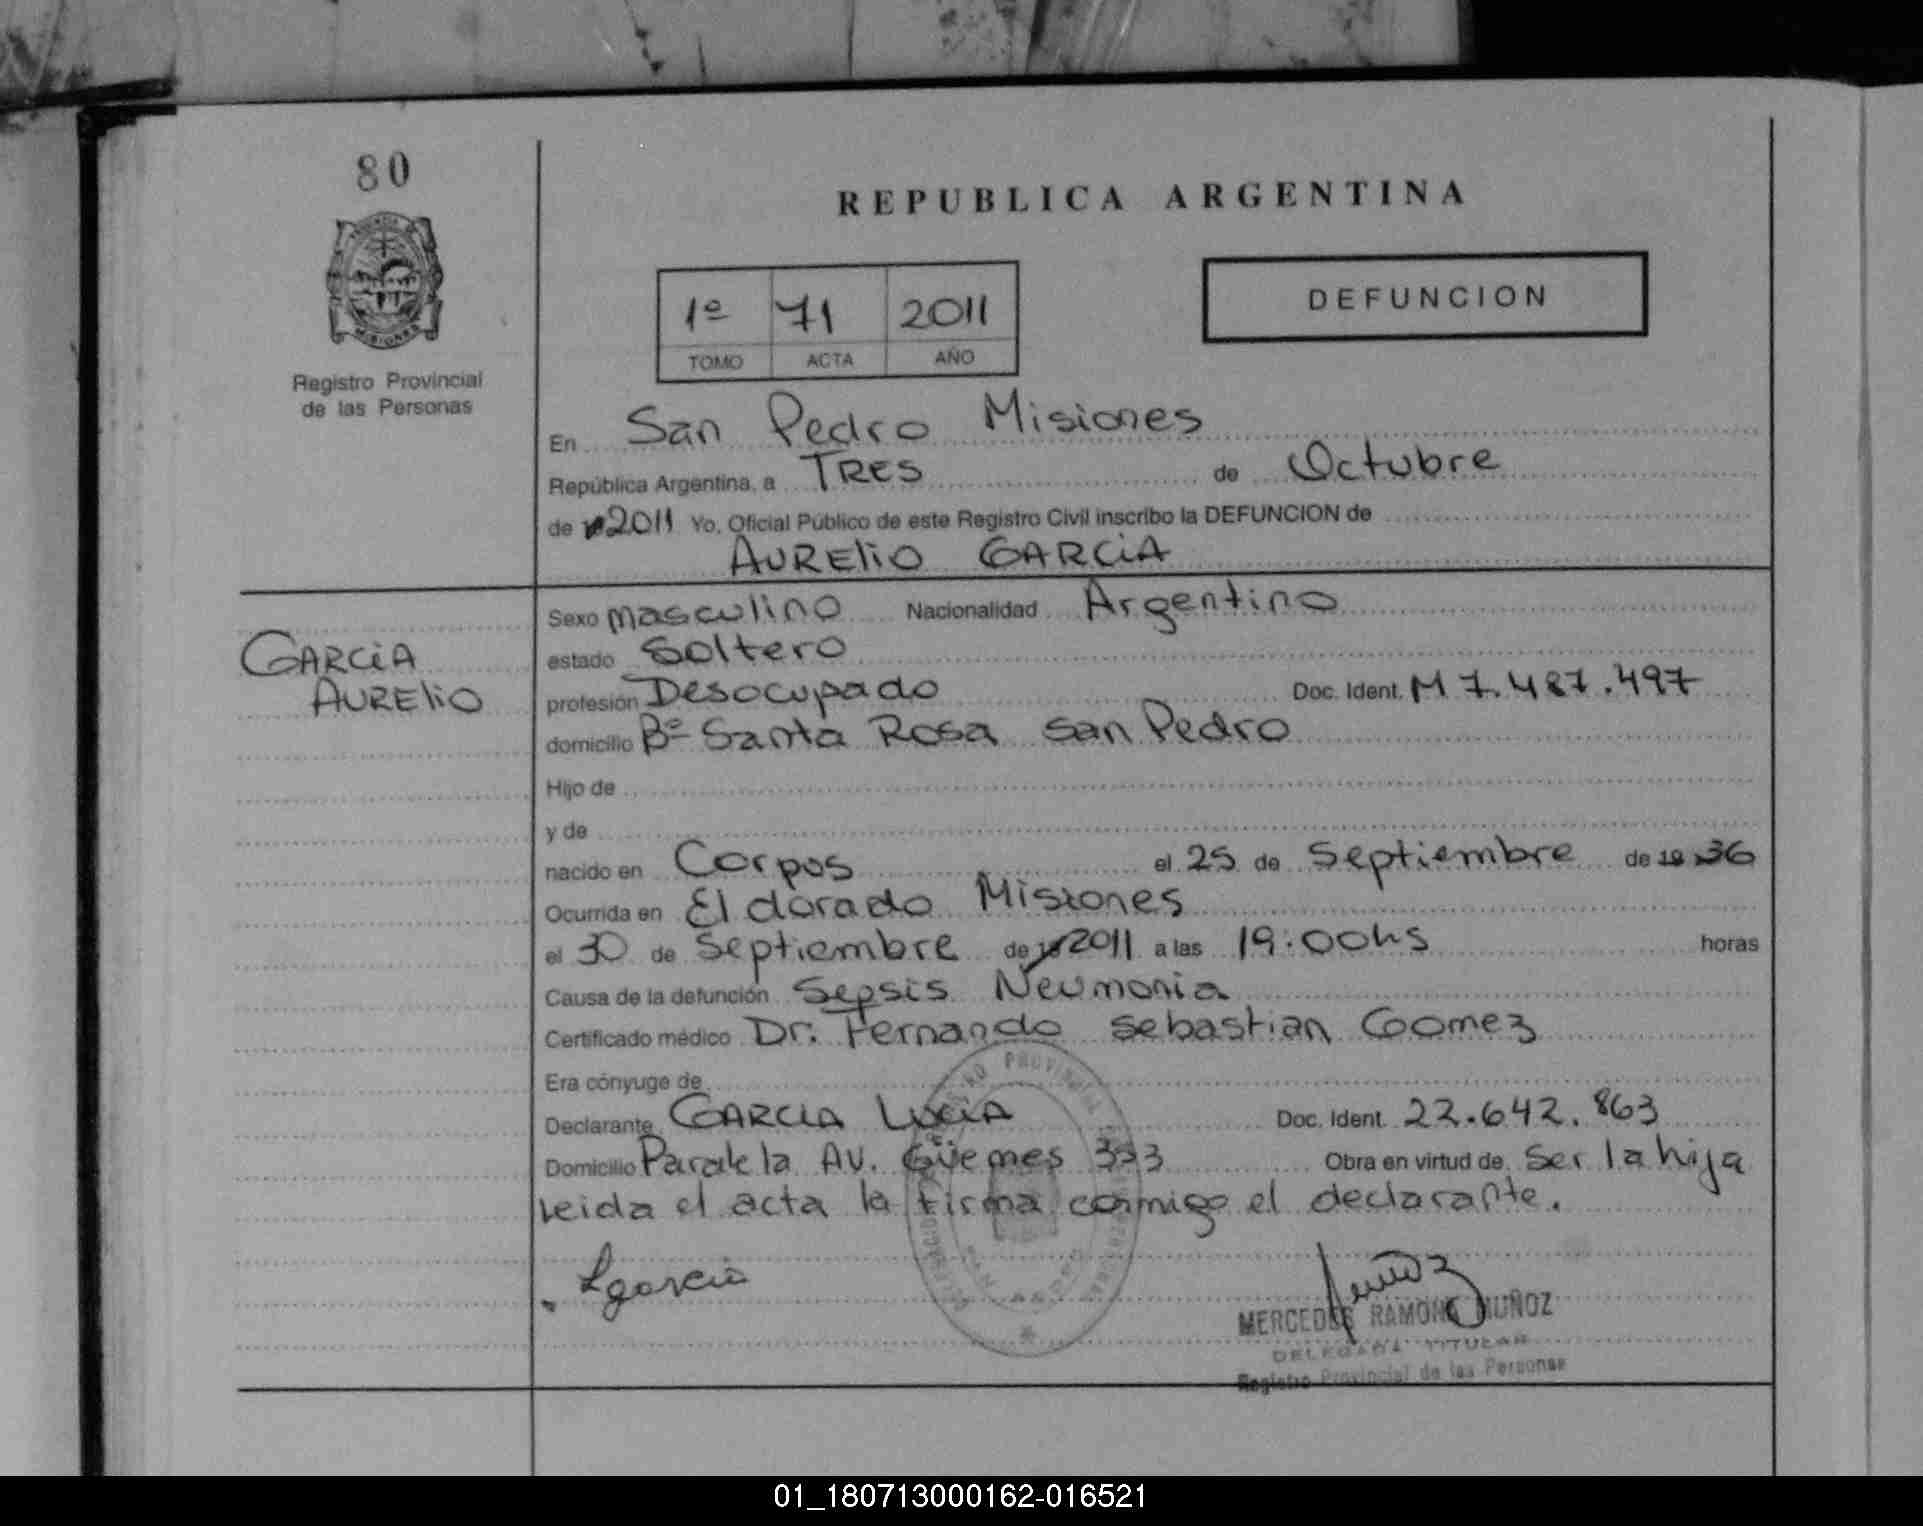 80
REPUBLICA ARGENTINA
1º 71 2011
TOMO ACTA AÑO
DEFUNCION
MISIONES
Registro Provincial
de las Personas
En San Pedro Misiones
República Argentina, a TRES de Octubre
de 2011 Yo, Oficial Público de este Registro Civil inscribo la DEFUNCION de
AURELIO GARCIA
GARCIA
AURELIO
Sexo masculino Nacionalidad Argentino
estado Soltero
profesión Desocupado Doc. Ident. M 7.487.497
domicilio Bº Santa Rosa San Pedro
Hijo de
y de
nacido en Corpus el 25 de Septiembre de 1936
Ocurrida en Eldorado Misiones
el 30 de Septiembre de 2011 a las 19:00hs horas
Causa de la defunción Sepsis Neumonia
Certificado médico Dr. Fernando Sebastian Gomez
Era cónyuge de
Declarante GARCIA LUCIA Doc. Ident. 22.642.863
Domicilio Paralela AV. Güemes 353 Obra en virtud de Ser la hija
Leida el acta la firma conmigo el declarante.
Lgarcia
MERCEDES RAMONA MUÑOZ
DELEGADA TITULAR
Registro Provincial de las Personas
01_180713000162-016521